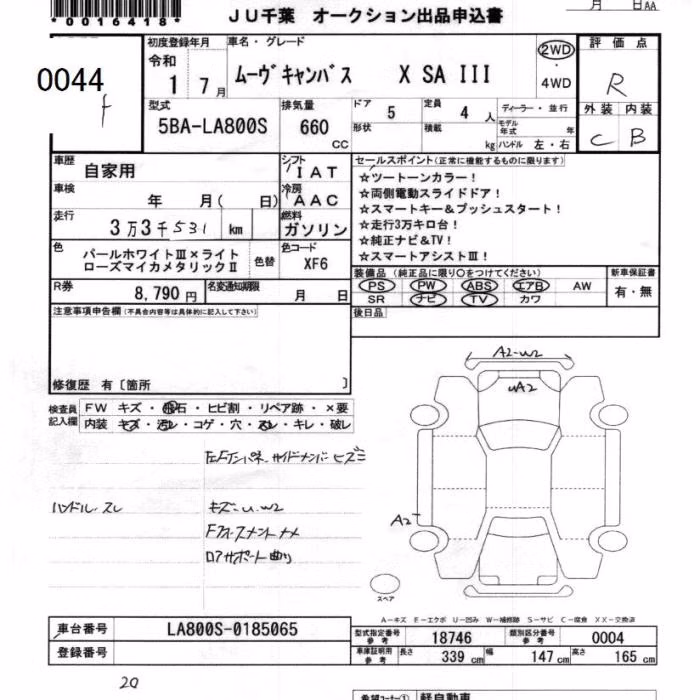 *0016418*
JU千葉 オークション出品申込書
月 日AA
0044
初度登録年月
令和
1 7月
車名・グレード
ムーヴキャンバス X SA III
2WD
4WD
評価点
R
外装 内装
C B
型式
5BA-LA800S
排気量
660 CC
ドア 5
形状
定員 4 人
積載 kg
ディーラー・並行
モデル年式 年
ハンドル 左・右
車歴 自家用
車検 年 月( 日)
走行 3万3千531 km
シフト IAT
冷房 AAC
燃料 ガソリン
色 パールホワイトⅢ×ライト
ローズマイカメタリックⅡ
色替
色コード XF6
R券 8,790円
名変通知期限 月 日
セールスポイント(正常に機能するものに限ります)
☆ツートーンカラー!
☆両側電動スライドドア!
☆スマートキー&プッシュスタート!
☆走行3万キロ台!
☆純正ナビ&TV!
☆スマートアシストⅢ!
装備品 (純正品に限り○をつけてください)
PS PW ABS エアB AW
SR ナビ TV カワ
新車保証書
有・無
後日品
注意事項申告欄(不具合内容等は具体的に記入して下さい)
修復歴 有〔箇所 〕
検査員記入欄
FW キズ・飛石・ヒビ割・リペア跡・×要
内装 キズ・汚レ・コゲ・穴・スレ・キレ・破レ
ハンドル スレ
キズ・U・W2
ロアサポート曲り
A2-W2
UA2
A2
スペア
A-キズ E-エクボ U-凹み W-補修跡 S-サビ C-腐食 XX-交換済
車台番号 LA800S-0185065
登録番号
型式指定番号 参考 18746
類別区分番号 参考 0004
車庫証明用 参考 長さ 339 cm 幅 147 cm 高さ 165 cm
20
希望コーナー① 軽自動車